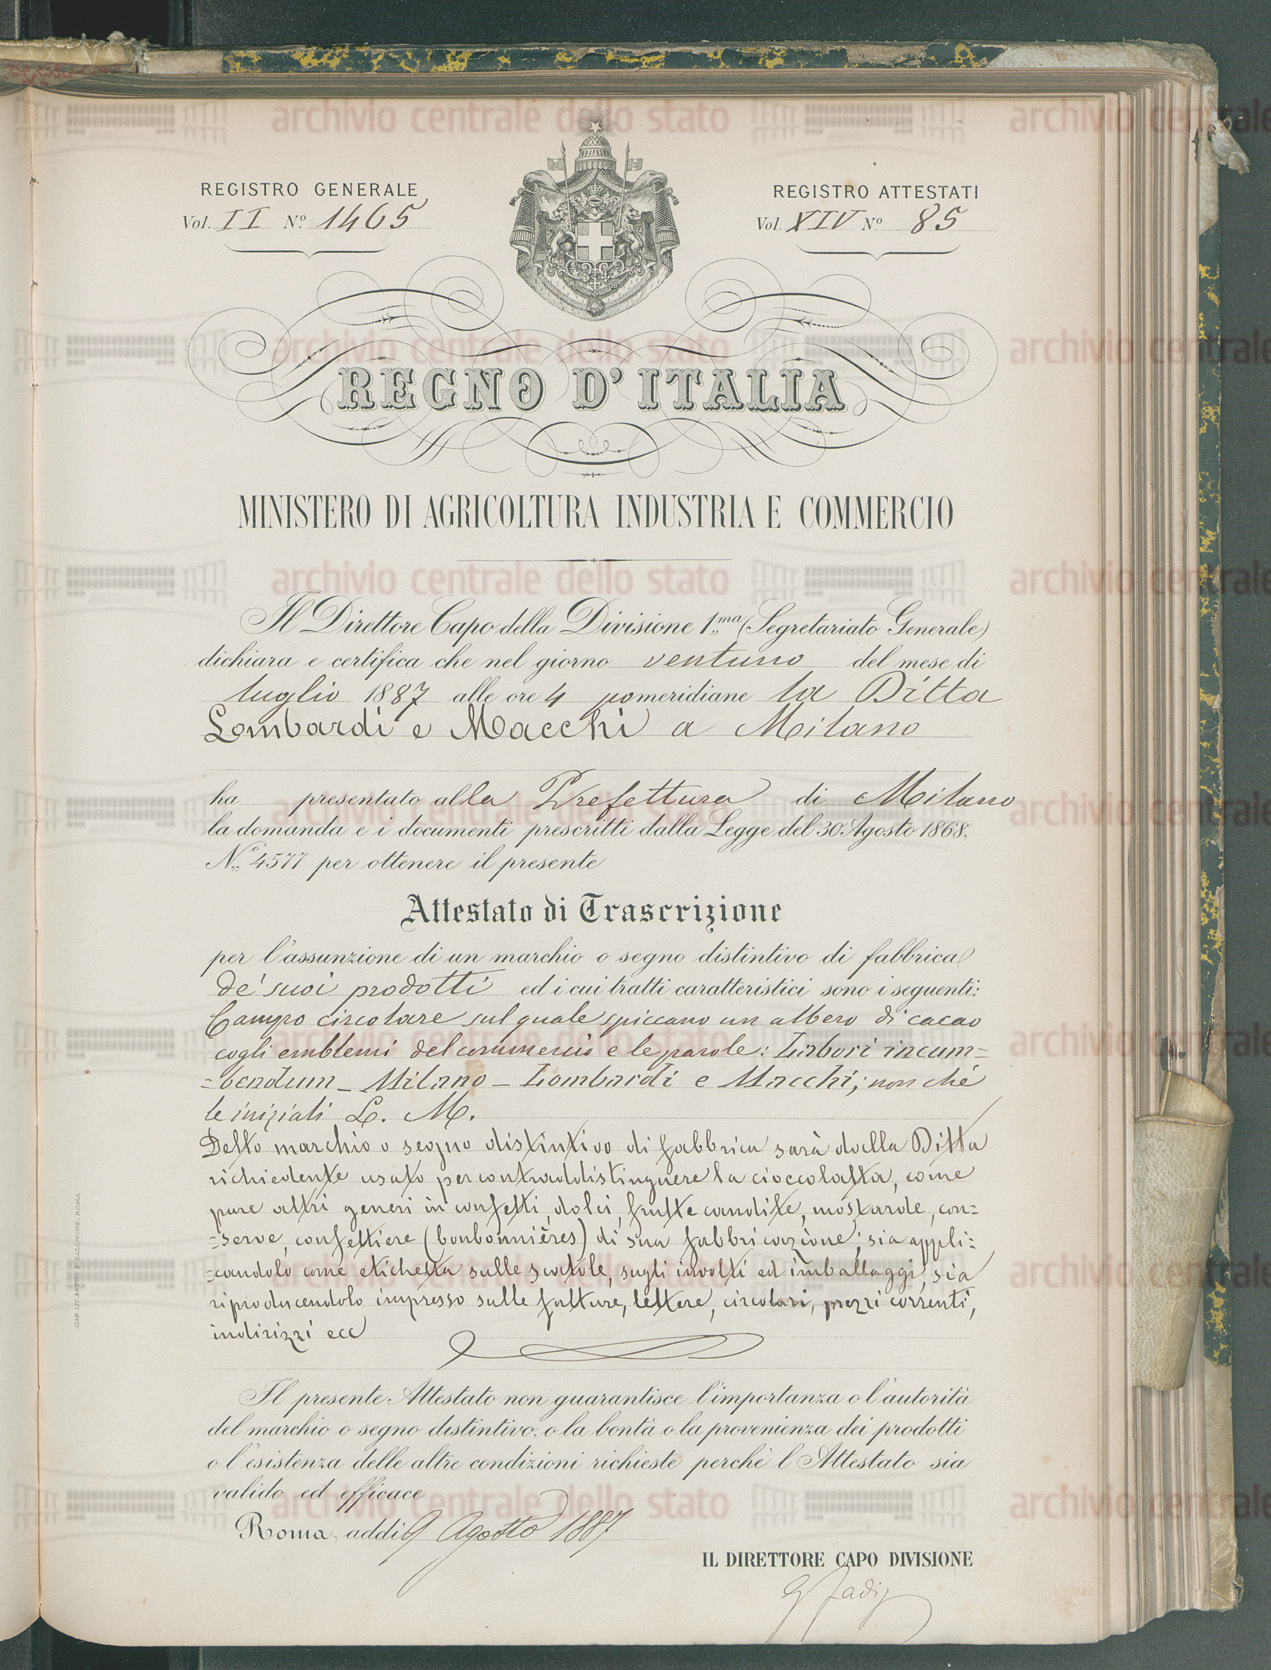 REGISTRO GENERALE
Vol. II N.º 1465
REGISTRO ATTESTATI
Vol. XIV N.º 85
REGNO D'ITALIA
MINISTERO DI AGRICOLTURA INDUSTRIA E COMMERCIO
Il Direttore Capo della Divisione 1.ma (Segretariato Generale)
dichiara e certifica che nel giorno ventuno del mese di
luglio 1887 alle ore 4 pomeridiane la Ditta
Lombardi e Macchi a Milano
ha presentato alla Prefettura di Milano
la domanda e i documenti prescritti dalla Legge del 30 Agosto 1868.
N.º 4577 per ottenere il presente
Attestato di Trascrizione
per l'assunzione di un marchio o segno distintivo di fabbrica
de' suoi prodotti ed i cui tratti caratteristici sono i seguenti:
Campo circolare sul quale spiccano un albero di cacao
cogli emblemi del commercio e le parole: Labori incum=
=bendum _ Milano _ Lombardi e Macchi; non chè
le iniziali L. M.
Detto marchio o segno distintivo di fabbrica sarà dalla Ditta
richiedente usato per contraddistinguere la cioccolatta, come
pure altri generi in confetti, dolci, frutte candite, mostarde, con=
=serve, confettiere (bonbonnières) di sua fabbricazione; sia appli=
=candolo come etichetta sulle scatole, sugli involti ed imballaggi, sia
riproducendolo impresso sulle fatture, lettere, circolari, prezzi correnti,
indirizzi ecc
Il presente Attestato non guarantisce l'importanza o l'autorità
del marchio o segno distintivo, o la bontà o la provenienza dei prodotti
o l'esistenza delle altre condizioni richieste perchè l'Attestato sia
valido ed efficace
Roma, addì 9 Agosto 1887
IL DIRETTORE CAPO DIVISIONE
archivio centrale dello stato